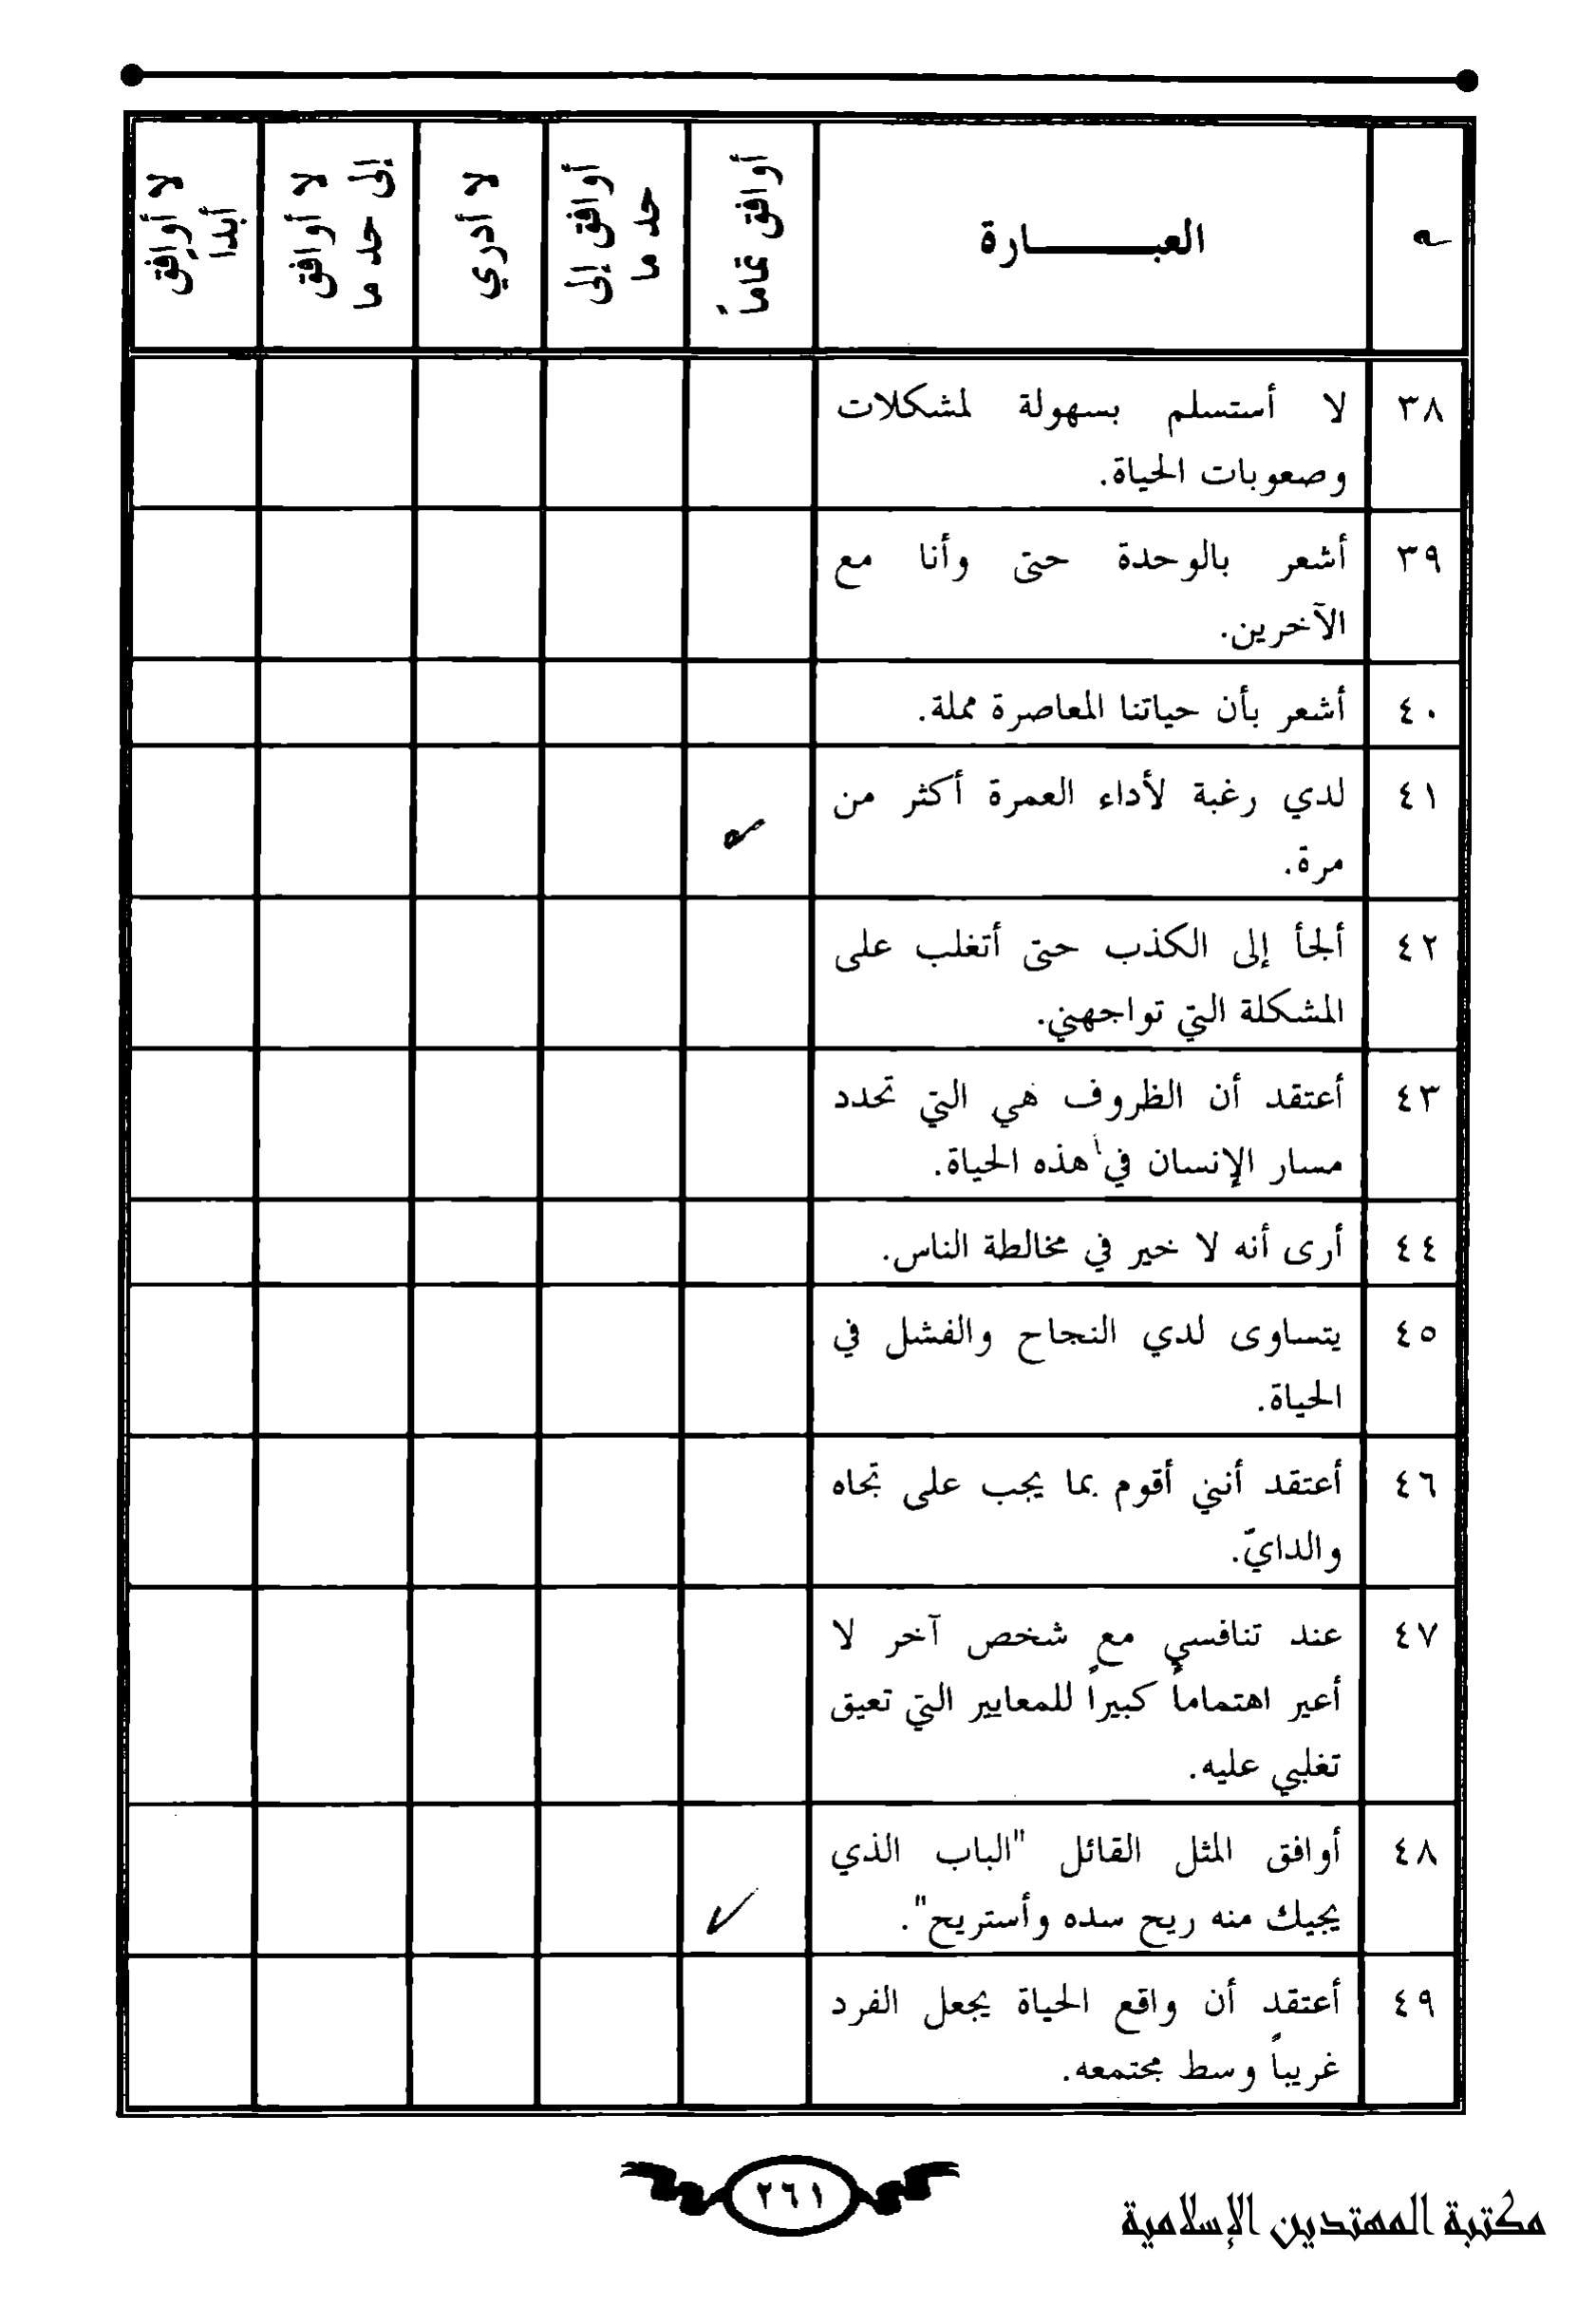 م العبـــــــارة أوافق تماماً أوافق إلى حد ما لا أدري لا أوافق إلى حد ما لا أوافق أبدا
٣٨ لا أستسلم بسهولة لمشكلات
وصعوبات الحياة.
٣٩ أشعر بالوحدة حتى وأنا مع
الآخرين.
٤٠ أشعر بأن حياتنا المعاصرة مملة.
٤١ لدي رغبة لأداء العمرة أكثر من
مرة.
٤٢ ألجأ إلى الكذب حتى أتغلب على
المشكلة التي تواجهني.
٤٣ أعتقد أن الظروف هي التي تحدد
مسار الإنسان في هذه الحياة.
٤٤ أرى أنه لا خير في مخالطة الناس.
٤٥ يتساوى لدي النجاح والفشل في
الحياة.
٤٦ أعتقد أنني أقوم بما يجب على تجاه
والدايّ.
٤٧ عند تنافسي مع شخص آخر لا
أعير اهتماماً كبيراً للمعايير التي تعيق
تغلبي عليه.
٤٨ أوافق المثل القائل "الباب الذي
يجيك منه ريح سده وأستريح".
٤٩ أعتقد أن واقع الحياة يجعل الفرد
غريباً وسط مجتمعه.
٢٦١
مكتبة المهتدين الإسلامية